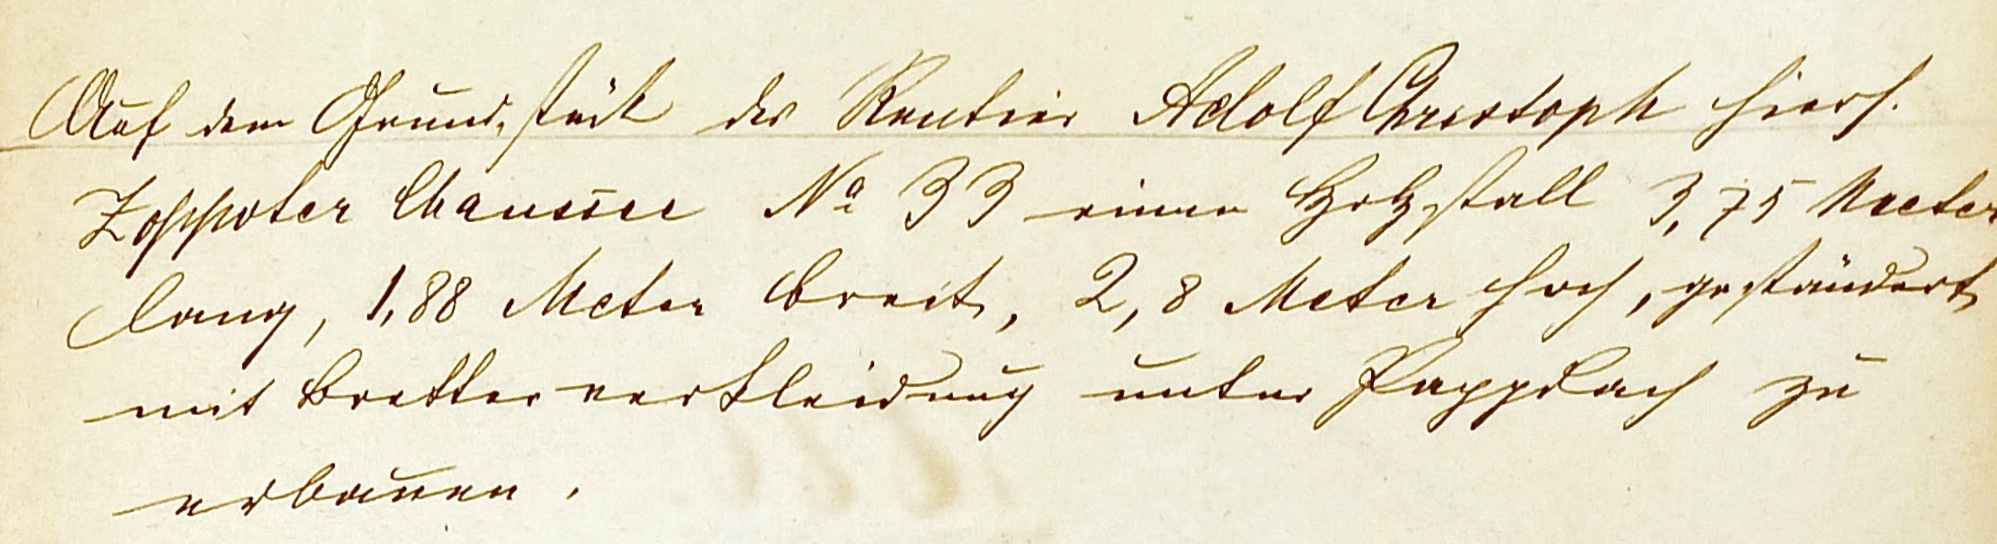 Auf dem Grundstück des Rentier Adolf Christoph hiers.
Zoppoter Chaussee No 33 einen Holzstall 3,75 Meter
lang, 1,88 Meter breit, 2,8 Meter hoch, geständert
mit Bretterverkleidung unter Pappdach zu
erbauen.